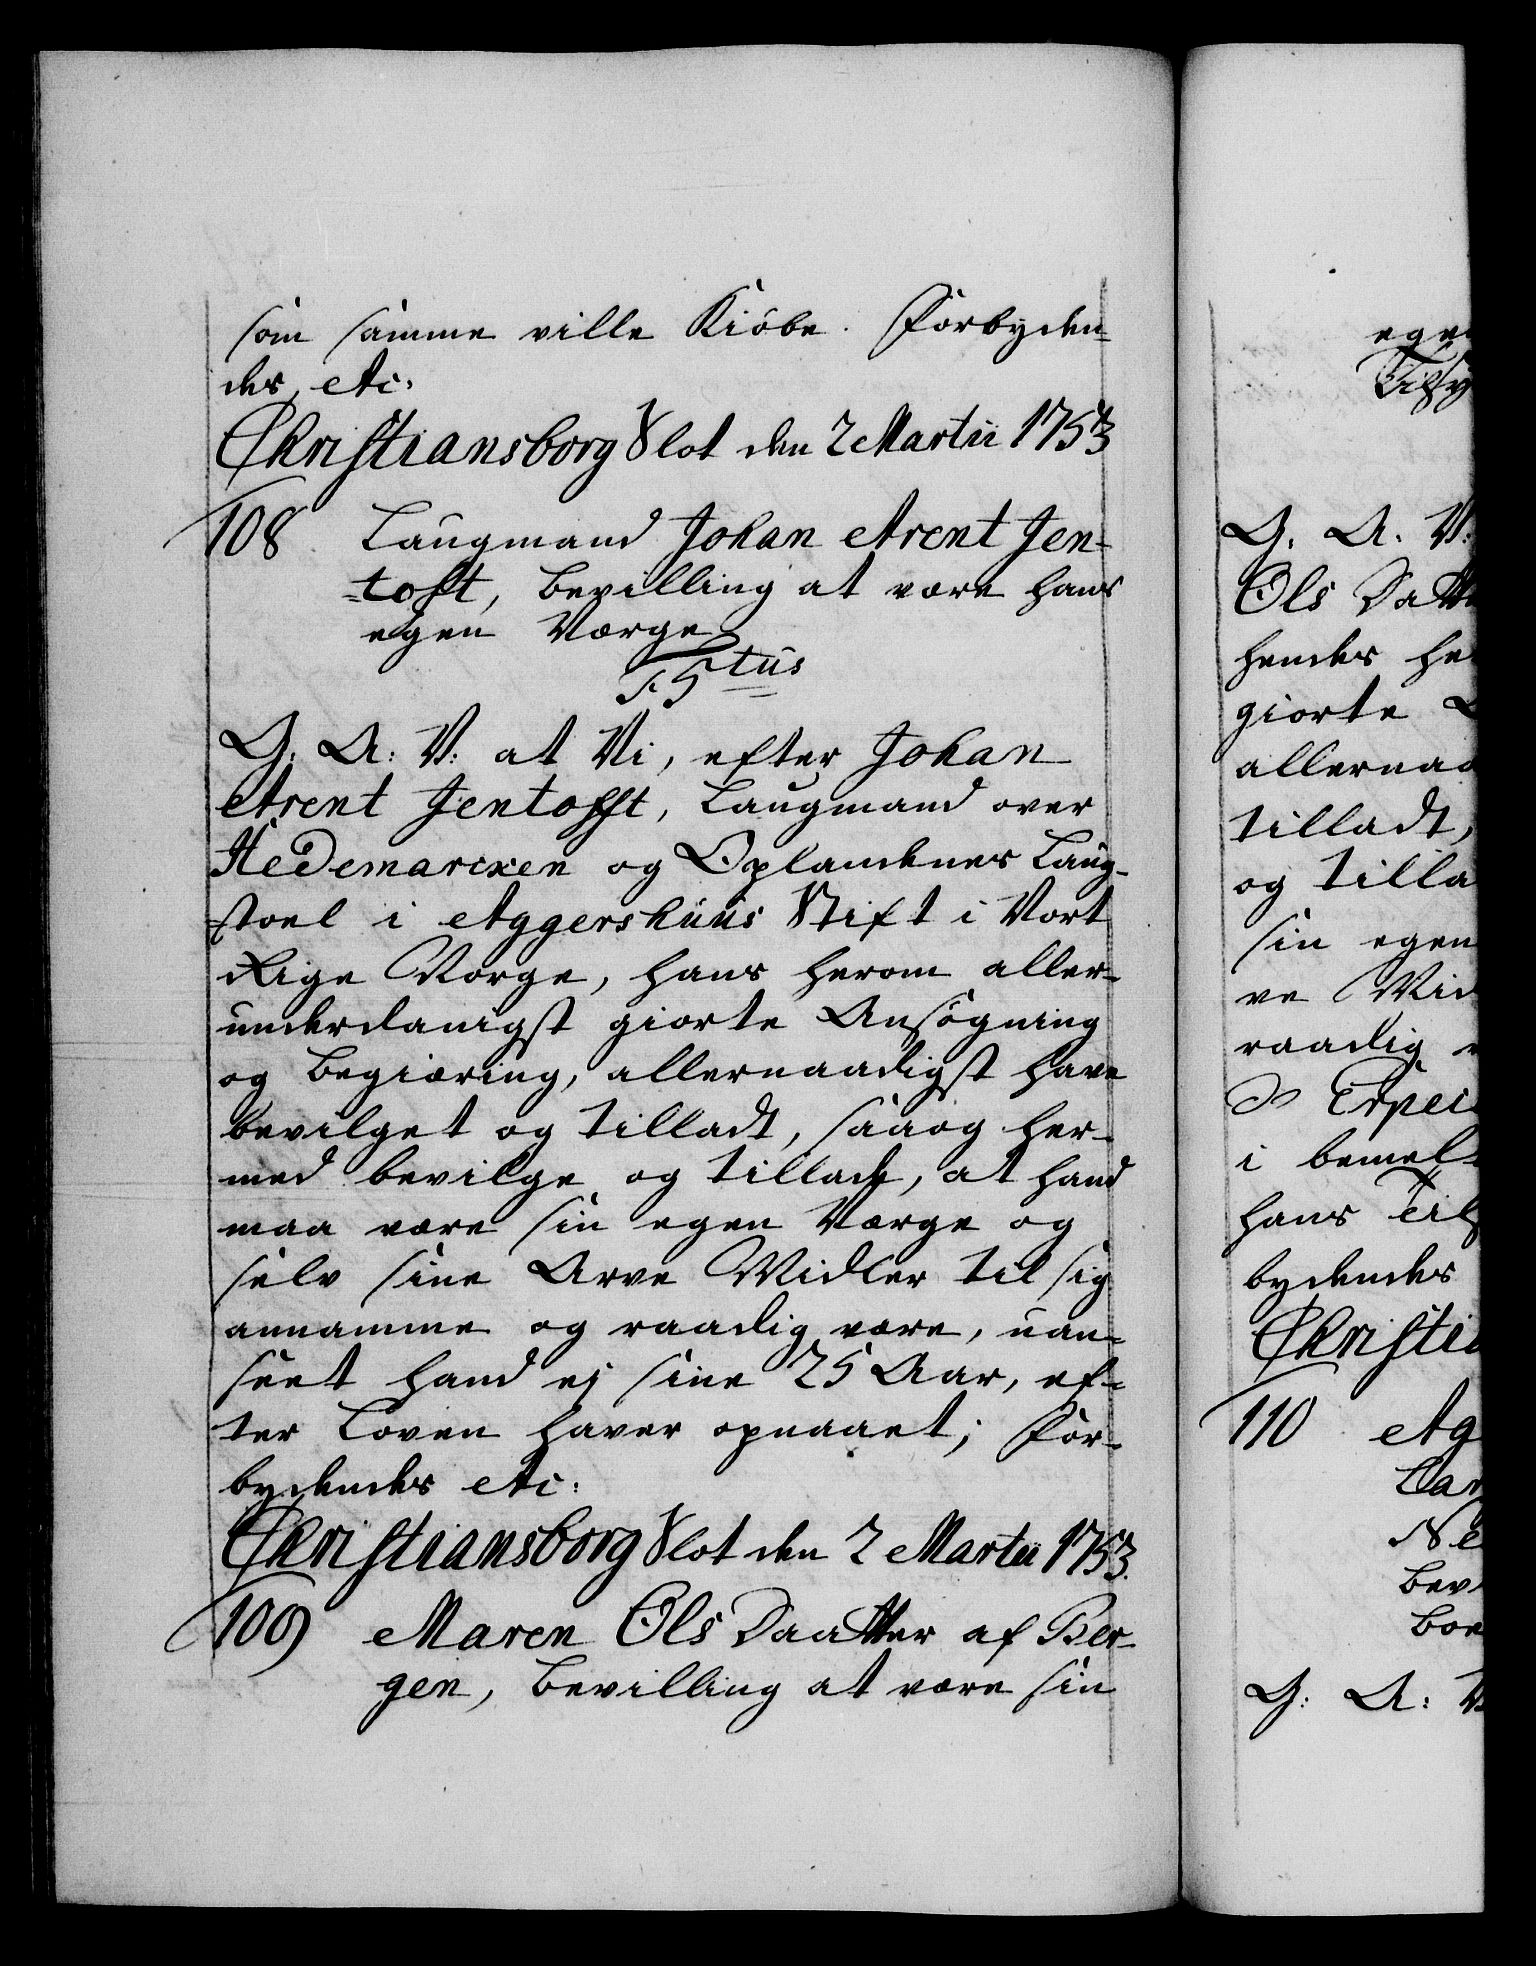 som samme ville Kiöbe. Forbyden-
des etc:
Christiansborg Slot den 2 Martii 1753
108 Laugmand Johan Arent Jen-
=toft, Bevilling at være hans
egen Værge
G. A: V: at Vi, efter Johan
Arent Jentofft, Laugmand over
Hedemarcken og Oplandenes Laug-
stoel i Aggershuus Stift i Vort
Rige Norge, hans herom aller-
underdanigst giorte Ansøgning
og Begiæring, allernaadigst have
bevilget og tilladt, saa og her-
med bevilge og tillade, at hand
maa være sin egen Værge og
selv sine Arve Midler til sig
annamme og raadig være, uan-
seet hand ej sine 25 Aar, ef-
ter Loven haver opnaaet; For-
bydendes etc:
Christiansborg Slot den 2 Martii 1753.
109 Maren Ols Daatter af Ber-
gen, Bevilling at være sin
egen
G. A. V:
Ols Datt
hendes he
giorte
allernaa
tilladt,
og tilla
sin egen
ve Mid
raadig
i bemel
hans Til
bydendes
Christia
110 Ag
Lar
Ne
Bev
Boe
G: A: V